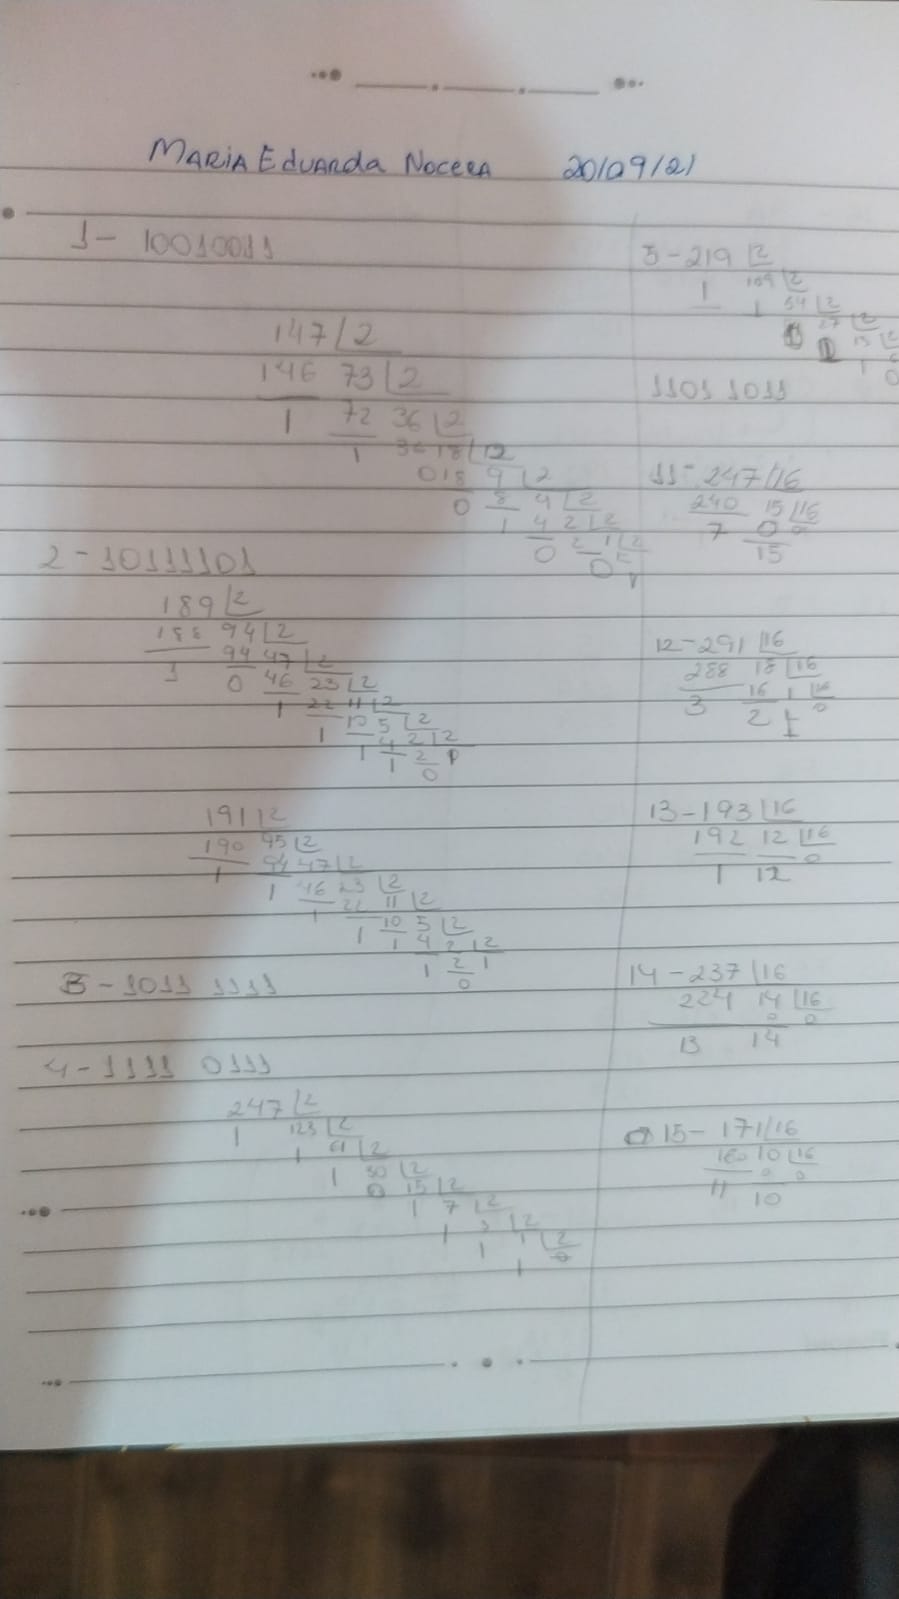 Maria Eduarda Nocera 20/09/21
1- 10010011
147 2
146 73 2
1 72 36 2
1 36 18 2
0 18 9 2
0 8 4 2
1 4 2 2
0 2 1 2
0
2- 10111101
189 2
188 94 2
1 94 47 2
0 46 23 2
1 22 11 2
1 10 5 2
1 4 2 2
1 2
0
191 2
190 95 2
1 94 47 2
1 46 23 2
1 22 11 2
1 10 5 2
1 4 2 2
1 2 1
0
3- 1011 1111
4- 1111 0111
247 2
1 123 2
1 61 2
1 30 2
0 15 2
1 7 2
1 3 2
1 1 2
1 0
5- 219 2
1 109 2
1 54 2
27 2
13 2
1 6
0
1101 1011
11- 247 16
240 15 16
7 0 0
15
12- 291 16
288 18 16
3 16 1 16
2 1 0
13- 193 16
192 12 16
1 12 0
14- 237 16
224 14 16
0 0
13 14
15- 171 16
160 10 16
11 0 0
10